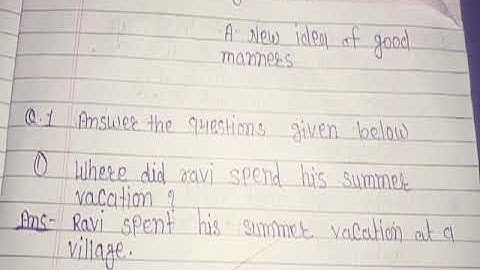 A New idea of good
manners
Q.1 Answer the questions given below
① Where did ravi spend his summer
vacation ?
Ans- Ravi spent his summer vacation at a
village.